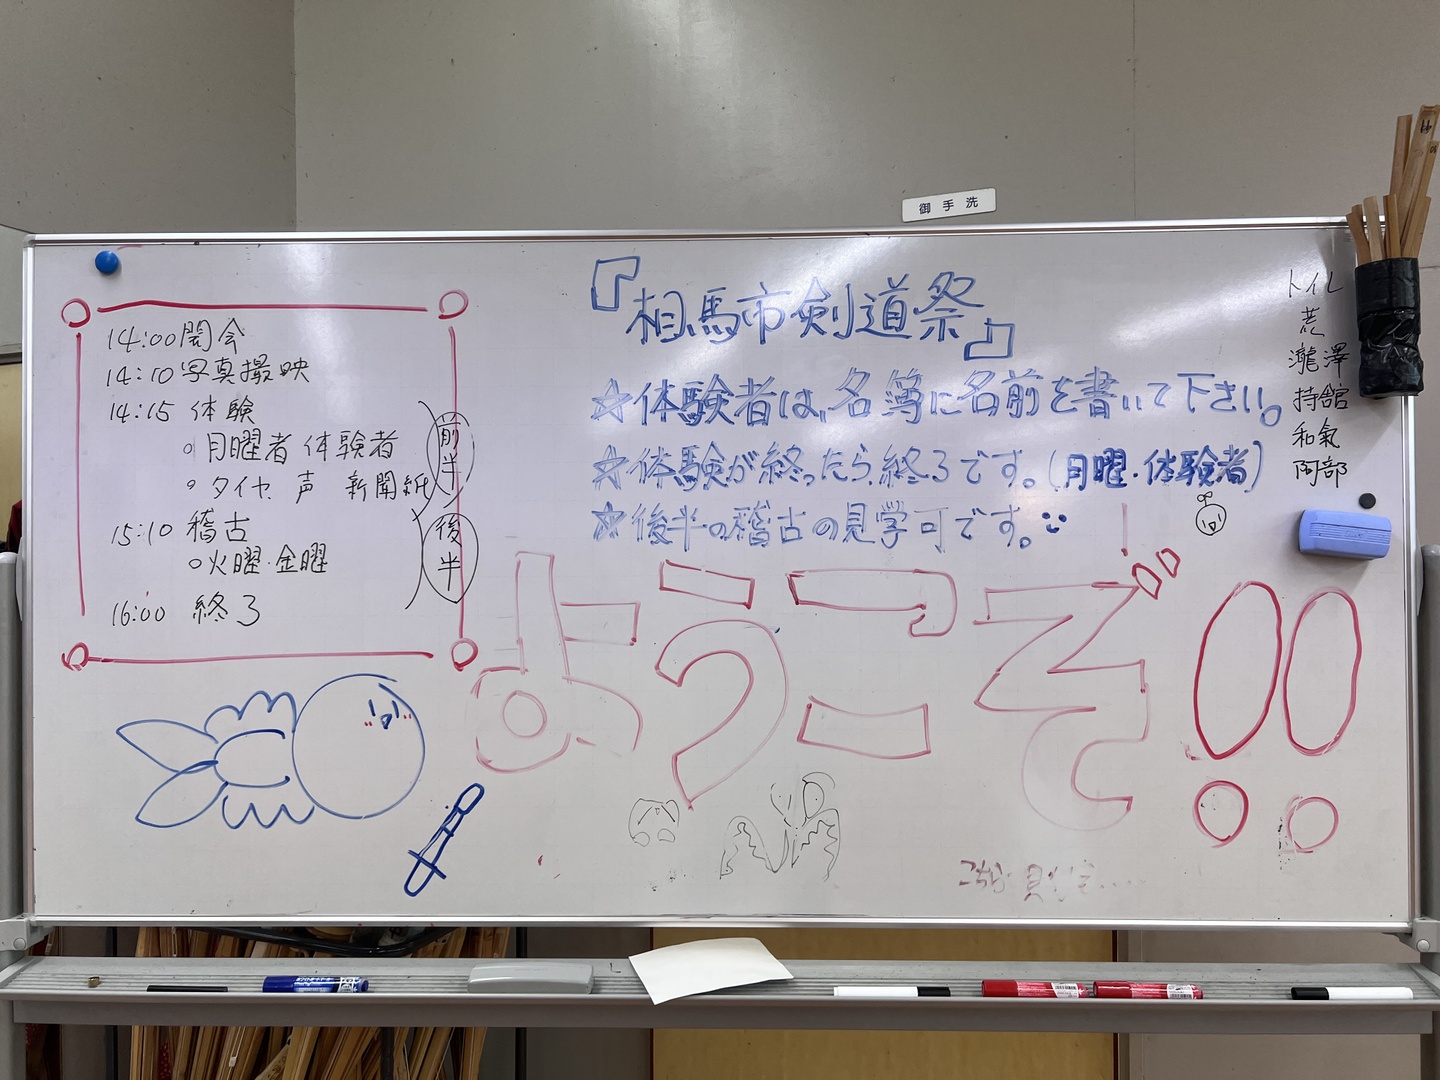 御手洗
14:00開会
14:10写真撮映
14:15 体験
○月曜者 体験者
○タイヤ 声 新聞紙
前半
15:10 稽古
○火曜・金曜
後半
16:00 終了
『相馬市剣道祭』
☆体験者は、名簿に名前を書いて下さい。
☆体験が終ったら終了です。(月曜・体験者)
☆後半の稽古の見学可です。
ようこそ!!
トイレ
荒
瀧澤
持舘
和氣
阿部